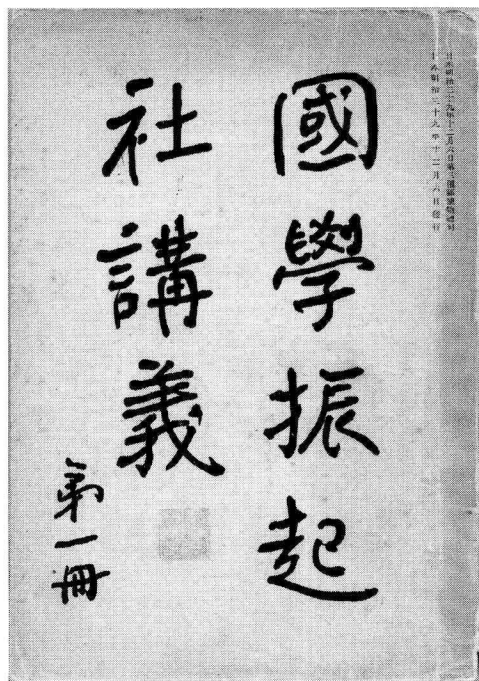 國學振起
社講義
第一冊